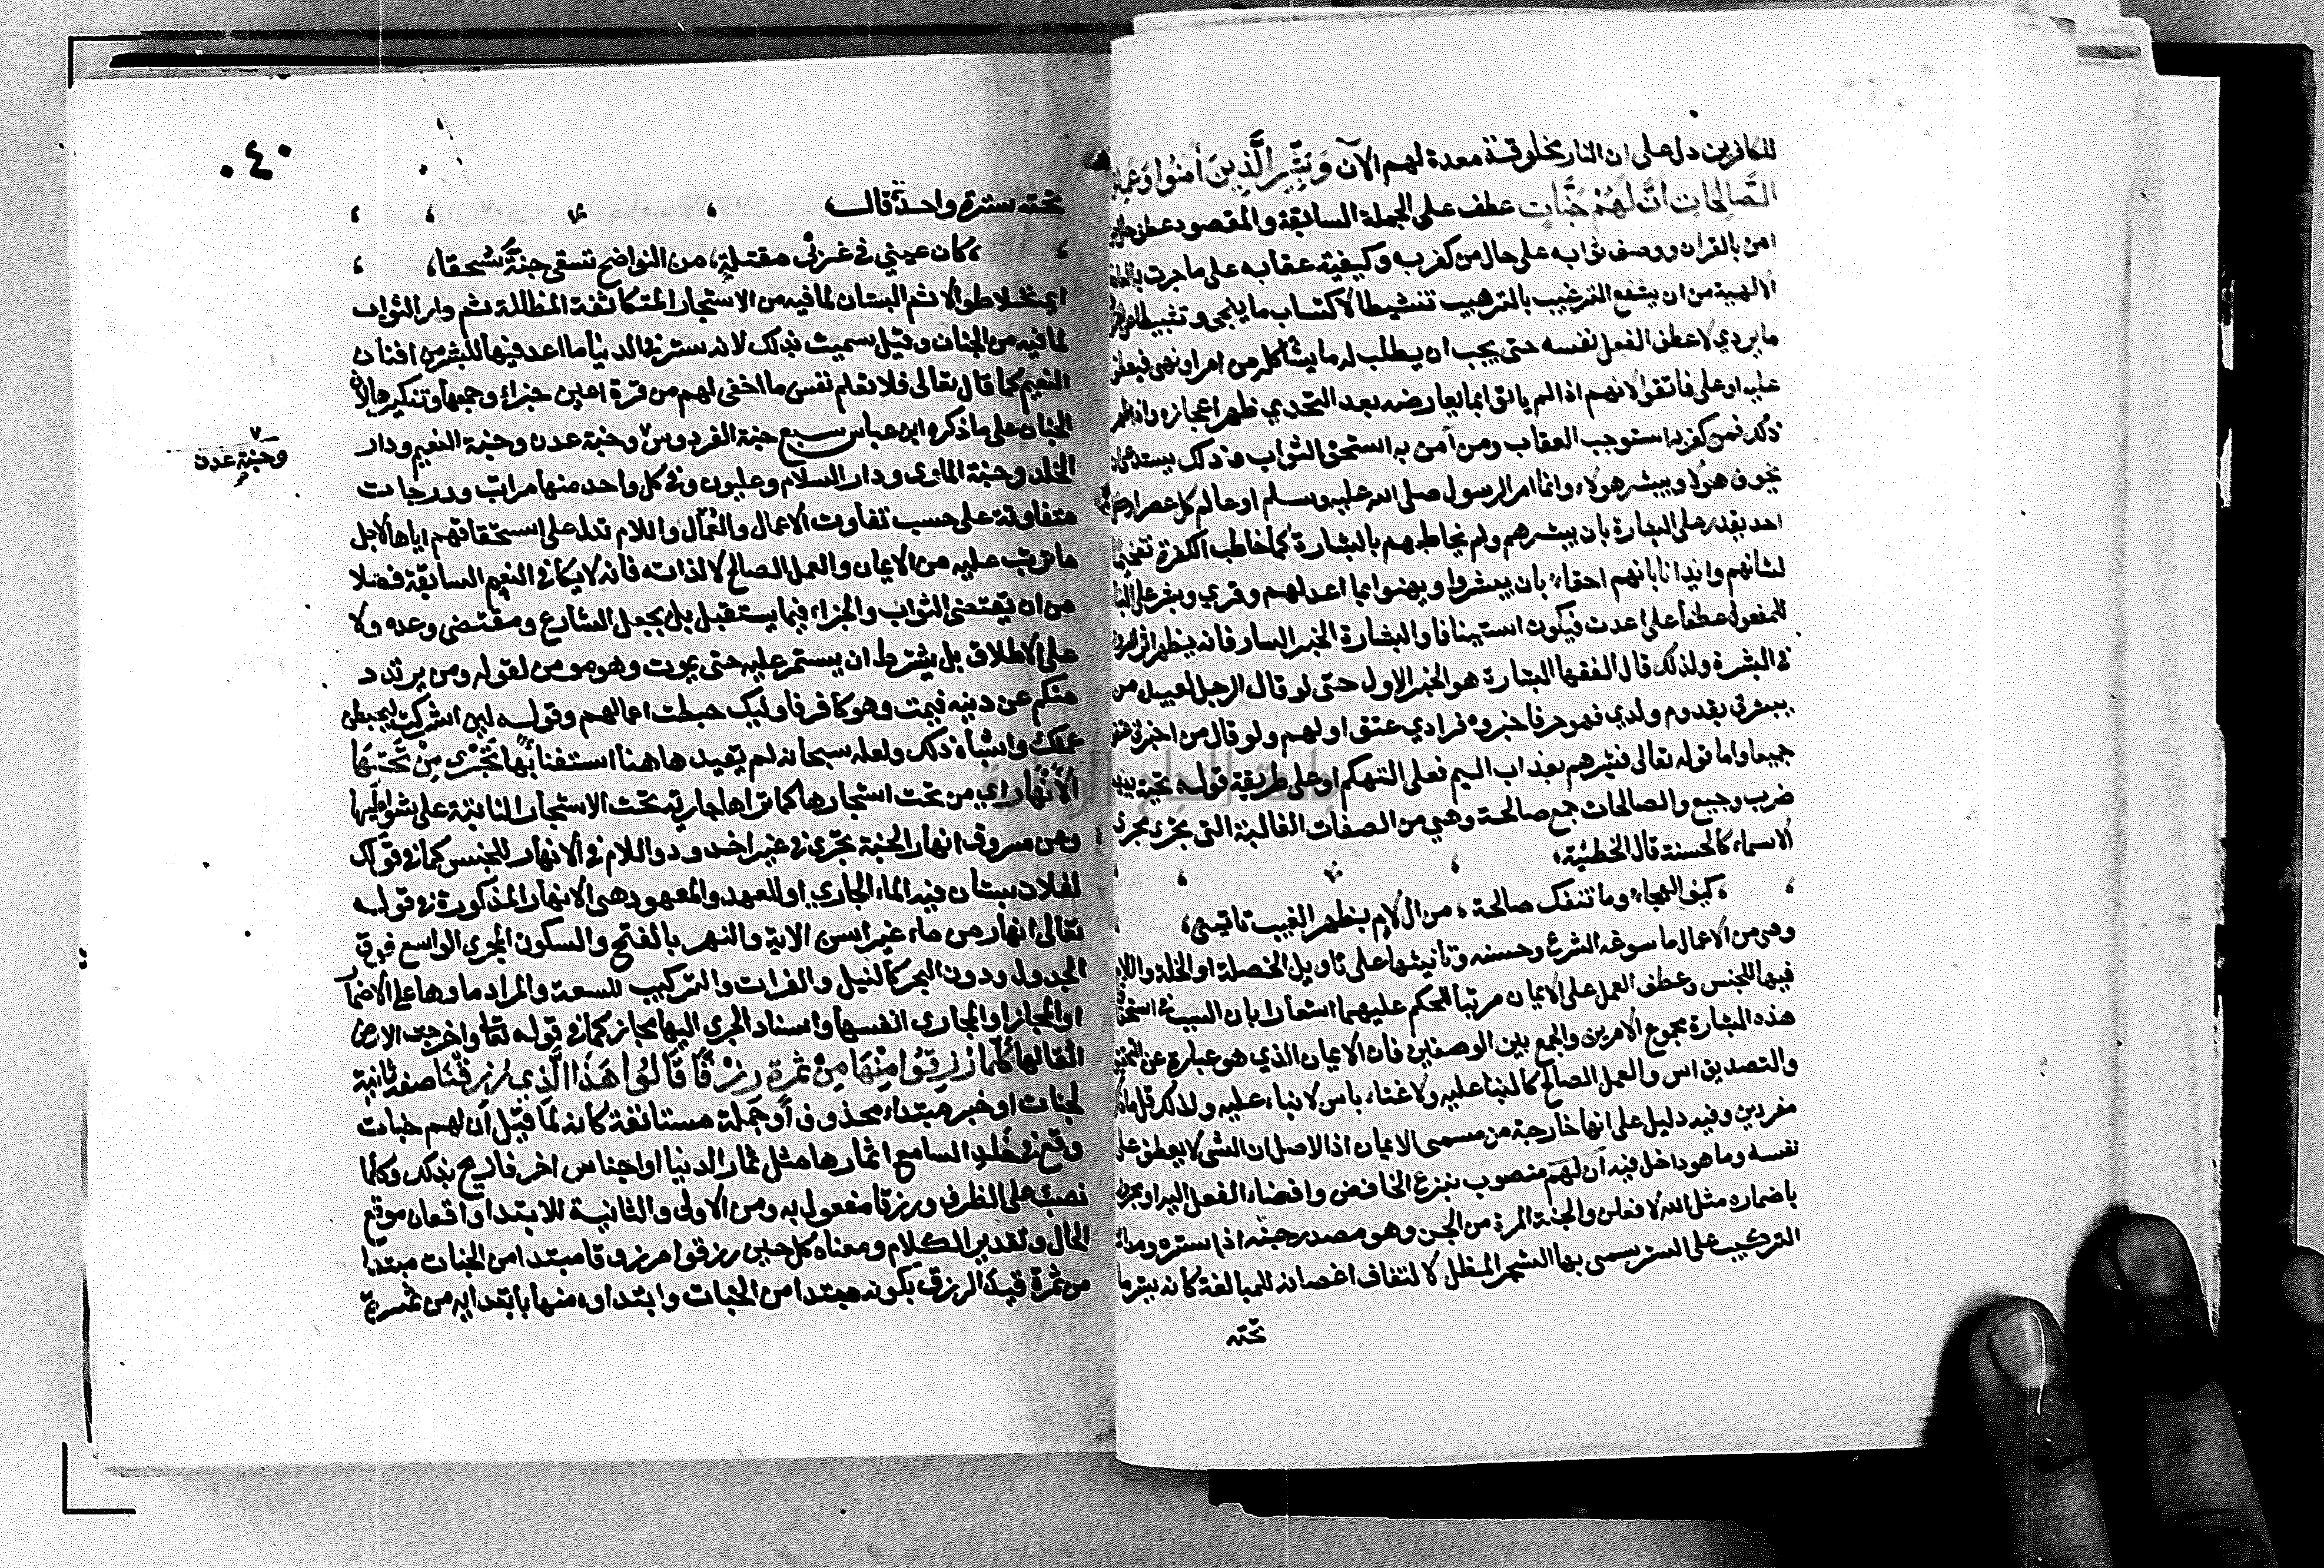 للكافرين دل على ان النار مخلوقة معدة لهم الآن وَبَشِّرِ الَّذِينَ اٰمَنُوا وَعَمِلُوا
الصَّالِحَاتِ اَنَّ لَهُمْ جَنَّاتٍ عطف على الجملة السابقة والمقصود عطف حال من
امن بالقران ووصف ثوابه على حال من كفر به وكيفية عقابه على ما جرت به العادة
الالهية من ان يشفع الترغيب بالترهيب تنشيطا لاكتساب ما ينجى وتثبيطا عن اقتراف
ما يردي لا عطف الفعل نفسه حتى يجب ان يطلب له ما يشاكله من امر او نهى فيعطف
عليه او على فاتقوا لانهم اذا لم ياتوا بما يعارضه بعد التحدي ظهر اعجازه واذا ظهر
ذلك فمن كفر به استوجب العقاب ومن آمن به استحق الثواب وذلك يستدعى ان
يخوف هؤلاء ويبشر هولاء وانما امر الرسول صلى الله عليه وسلم او عالم كل عصر او كل
احد يقدر على البشارة بان يبشرهم ولم يخاطبهم بالبشارة كما خاطب الكفرة تفخيما
لشانهم وايذانا بانهم احقاء بان يبشروا ويهنوا بما اعد لهم وقري وبشر على البناء
للمفعول عطفا على اعدت فيكون استينافا والبشارة الخبر السار فانه يظهر اثر السرور
في البشرة ولذلك قال الفقها البشارة هو الخبر الاول حتى لو قال الرجل لعبيده من
يبشرني بقدوم ولدي فهو حر فاخبروه فرادي عتق اولهم ولو قال من اخبرني عتقوا
جميعا واما قوله تعالى فبشرهم بعذاب اليم فعلى التهكم او على طريقة قوله تحية بينهم
ضرب وجيع والصالحات جمع صالحة وهي من الصفات الغالبة التي تجرى مجرى
الاسماء كالحسنة قال الحطيئة،
كيف الهجاء وما تنفك صالحة ، من ال لام بظهر الغيب تاتيني،
وهى من الاعمال ما سوغه الشرع وحسنه وتانيثها على تاويل الخصلة او الخلة واللام
فيها للجنس وعطف العمل على الايمان مرتبا للحكم عليهما اشعارا بان السبب في استحقاق
هذه البشارة مجموع الامرين والجمع بين الوصفين فان الايمان الذي هو عبارة عن التحقيق
والتصديق اس والعمل الصالح كالبنا عليه ولا غناء باس لا بناء عليه ولذلك قل ما ذكرا
مفردين وفيه دليل على انها خارجة من مسمى الايمان اذ الاصل ان الشي لا يعطف على
نفسه وما هو داخل فيه أن لهم منصوب بنزع الخافض وافضاء الفعل اليه او مجرور
باضماره مثل الله لافعلن والجنة المرة من الجن وهو مصدر جنه اذا ستره ومدار
التركيب على الستر سمى بها الشجر المظلل لالتفاف اغصانه للمبالغة كانه يستر ما
تحته
٤٠
تحته سترة واحدة قال
كان عيني في غربى مقتلة، من النواضح تسقى جنة سُحقا،
اي نخلا طوالا ثم البستان لما فيه من الاشجار المتكاثفة المظللة ثم دار الثواب
لما فيه من الجنان وقيل سميت بذلك لانه ستر في الدنيا ما اعد فيها للبشر من افنان
النعيم كما قال تعالى فلا تعلم نفس ما اخفى لهم من قرة اعين جزاء وجمعها وتنكيرها لان
الجنان على ما ذكره ابن عباس سبع جنة الفردوس وجنة عدن وجنة النعيم ودار
وجنة عدن
الخلد وجنة الماوى ودار السلام وعليون وفي كل واحد منها مراتب ودرجات
متفاوتة على حسب تفاوت الاعمال والعمال واللام تدل على استحقاقهم اياها لاجل
ما ترتب عليه من الايمان والعمل الصالح لا لذاته فانه لا يكافى النعم السابقة فضلا
من ان يقتضى الثواب والجزاء فيما يستقبل بل بجعل الشارع ومقتضى وعده ولا
على الاطلاق بل يشترط ان يستمر عليه حتى يموت وهو مومن لقوله ومن يرتدد
منكم عن دينه فيمت وهو كافر فاوليك حبطت اعمالهم وقوله لين اشركت ليحبطن
عملك واشباه ذلك ولعله سبحانه لم يقيد هاهنا استغناء بها تَجْرِى مِنْ تَحْتِهَا
الأَنْهَارُ اي من تحت اشجارها كما تراها جارية تحت الاشجار النابتة على شواطيها
وعن مسروق انهار الجنة تجرى في غير اخدود واللام في الانهار للجنس كما في قولك
لفلان بستان فيه الماء الجاري او للعهد والمعهود هى الانهار المذكورة في قوله
تعالى انهار من ماء غير اسن الاية والنهر بالفتح والسكون المجرى الواسع فوق
الجدول ودون البحر كالنيل والفرات والتركيب للسعة والمراد ماوها على الاضمار
او المجاز او المجارى انفسها واسناد الجرى اليها مجاز كما في قوله تعا واخرجت الارض
اثقالها كُلَّمَا رُزِقُوا مِنْهَا مِنْ ثَمَرَةٍ رِزْقًا قَالُوا هَذَا الَّذِي رُزِقْنَا صفة ثانية
لجنات او خبر مبتداء محذوف أو جملة مستانفة كانه لما قيل أن لهم جنات
وقع في خَلَدِ السامع اثمارها مثل ثمار الدنيا او اجناس اخر فازيح بذلك وكلما
نصب على الظرف ورزقا مفعول به ومن الاولى والثانية للابتدا واقعان موقع
الحال وتقدير الكلام ومعناه كل حين رزقوا مرزوقا مبتدا من الجنات مبتدا
من ثمرة قيد الرزق بكونه مبتدا من الجنات وابتداوه منها بابتدايه من ثمرة